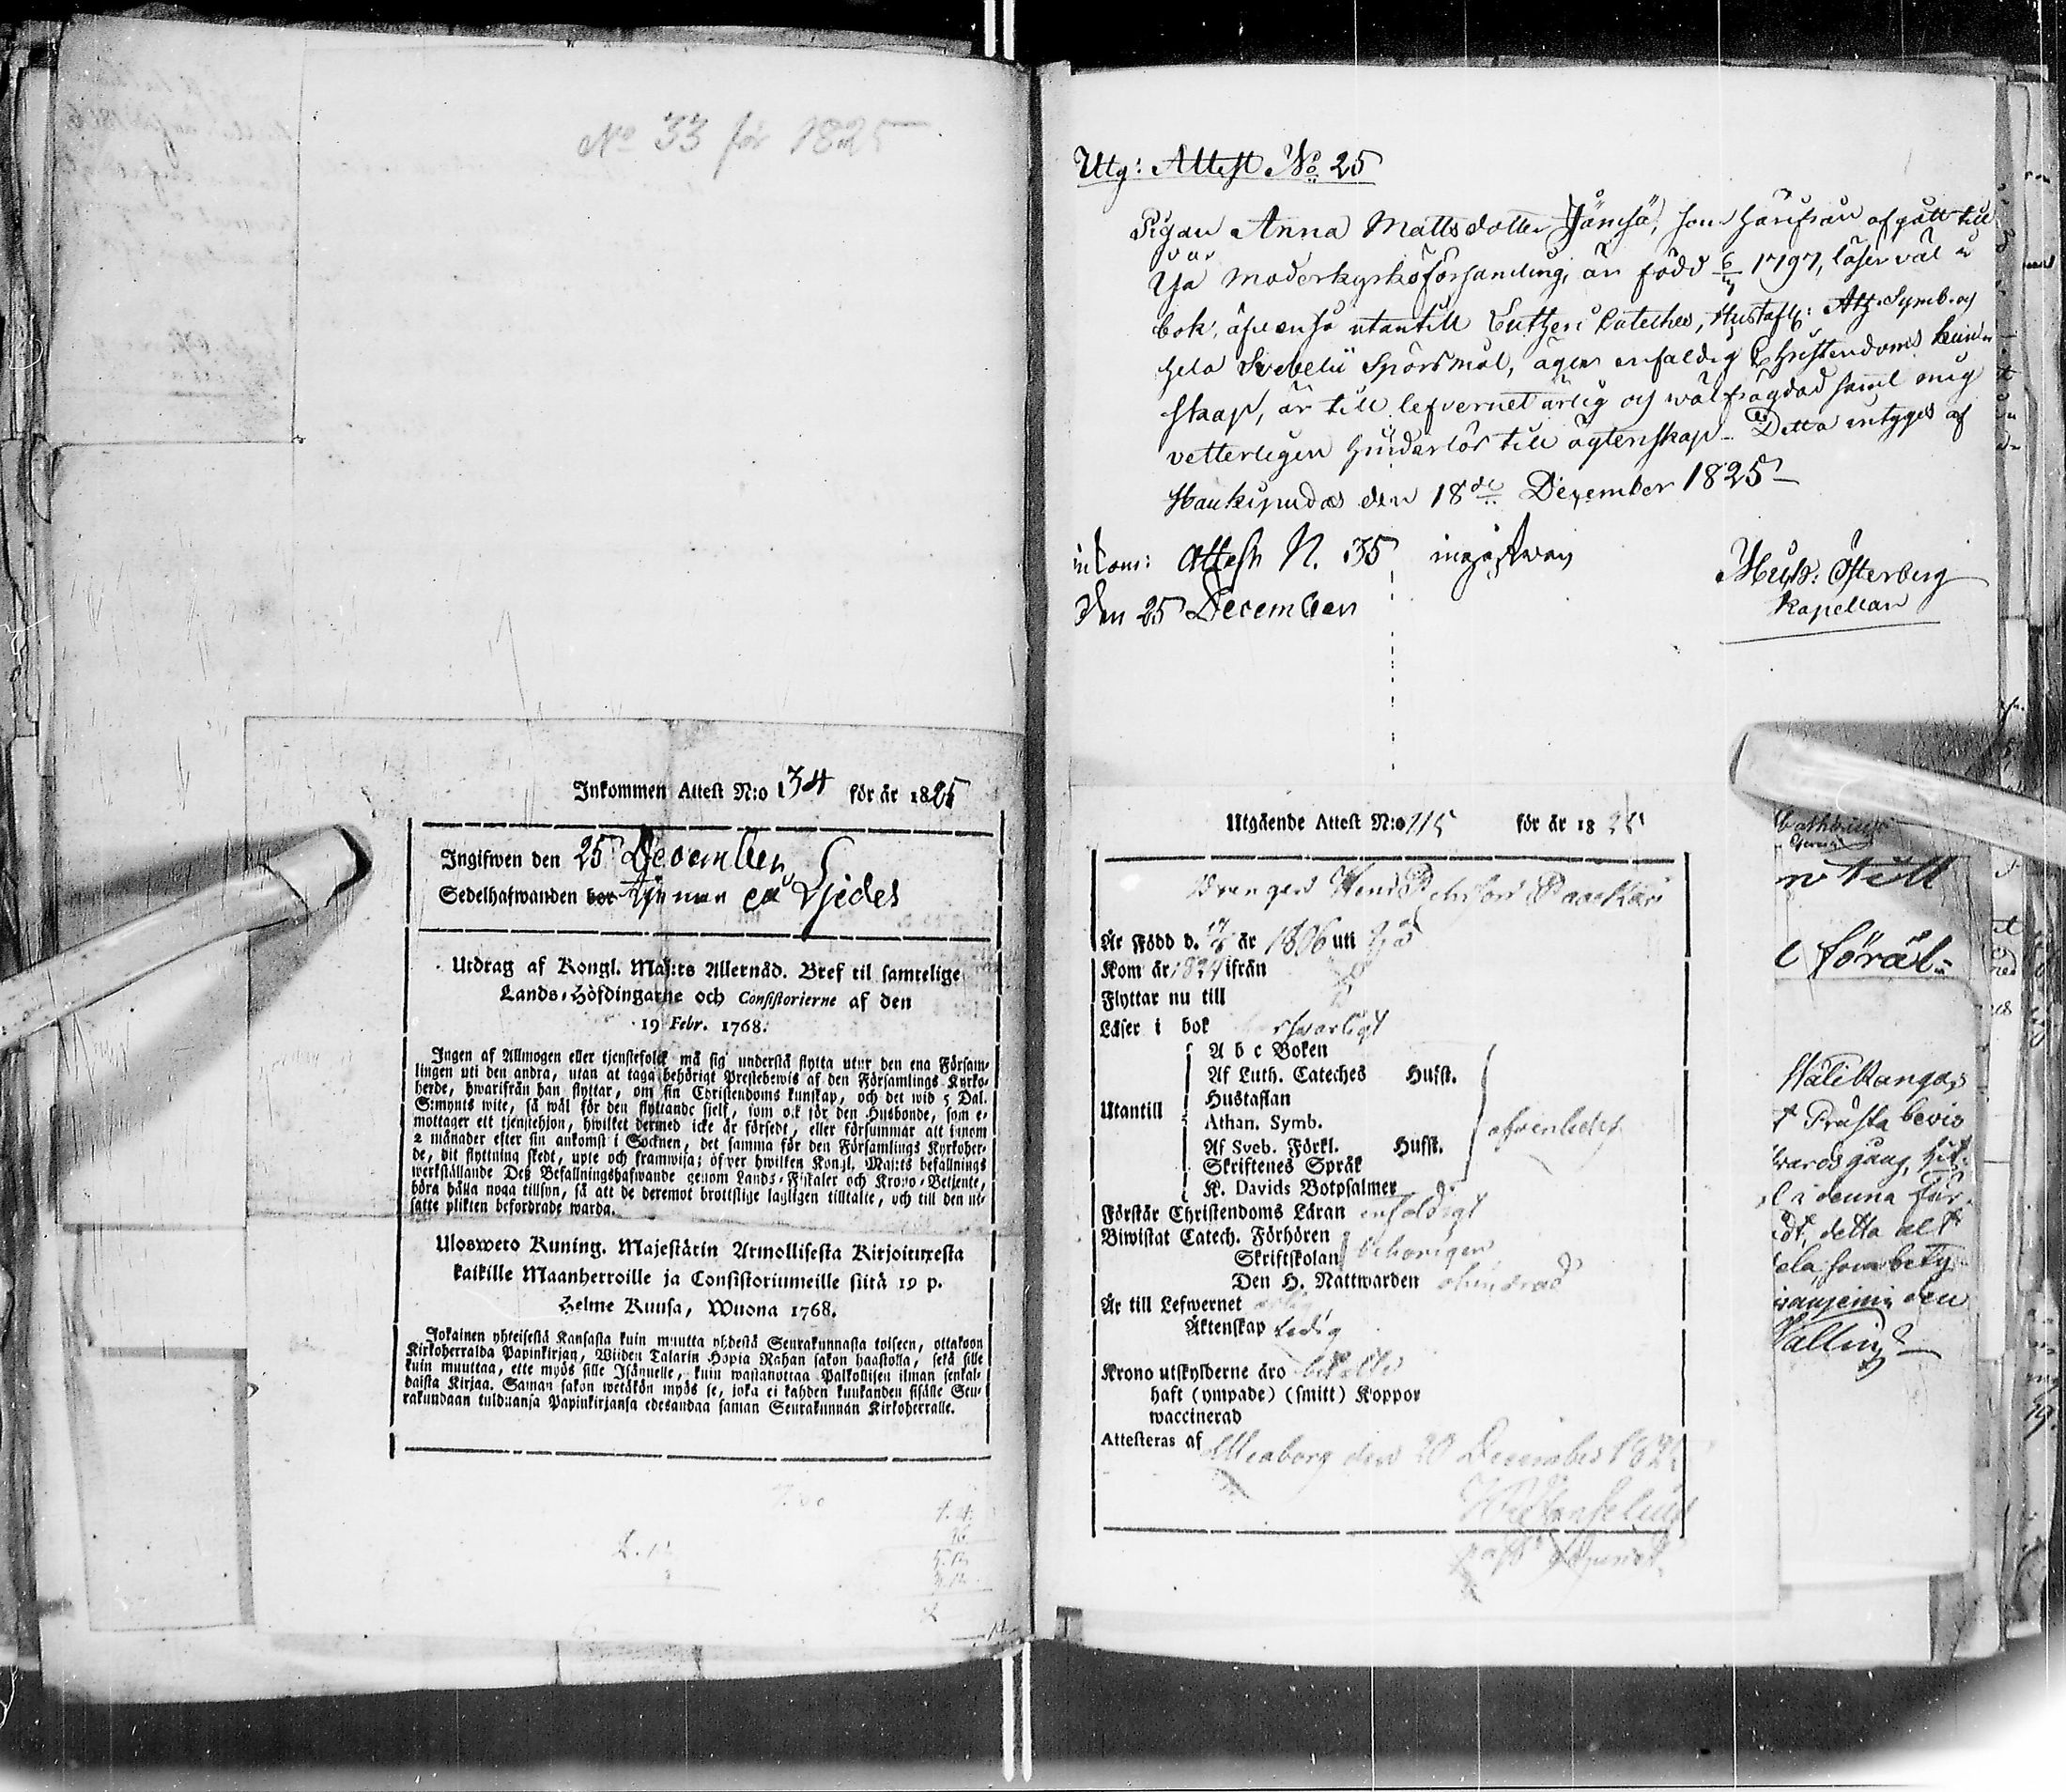 No 33 för 1825
Inkommen Attest N:o 134 för år 1825
Ingifwen den 25 December
Sedelhafwanden bor
Utdrag af Kongl. Maj:ts Allernåd. Bref til samtelige
Lands-Höfdingarne och Consistorierne af den
19 Febr. 1768.
Ingen af Allmogen eller tjenstefolck må sig understå flytta utur den ena Försam-
lingen uti den andra, utan at taga behörigt Prestebewis af den Församlings Kyrko-
herde, hwarifrån han flyttar, om sin Christendoms kunskap, och det wid 5 Dal.
S:mynts wite, så wäl för den flyttande sielf, som ock för den Husbonde, som e-
mottager ett tjenstehjon, hwilket dermed icke är försedt, eller försummar att innom
2 månader efter sin ankomst i Socknen, det samma för den Församlings Kyrkoher-
de, dit flyttning skedt, upte och framwisa; öfwer hwilken Kongl. Maj:ts befallnings
werkställande Deß Befallningshafwande genom Lands-Fiskaler och Krono-Betjente,
böra hålla noga tillsyn, så att de deremot brottslige lagligen tilltalte, och till den ut-
satte plikten befordrade warda.
Ulosweto Kuning. Majestätin Armollisesta Kirjoituxesta
kaikille Maanherroille ja Consistoriumeille siitä 19 p.
Helme Kuusa, Wuona 1768.
Jokainen yhteisestä Kansasta kuin muutta yhdestä Seurakunnasta toiseen, ottakoon
Kirkoherralda Papinkirjan, Wiiden Talarin Hopia Rahan sakon haastolla, sekä sille
kuin muuttaa, ette myös sille Isännelle, kuin wastanottaa Palkollisen ilman senkal-
daista Kirjaa. Saman sakon wetäkön myös se, joka ei kahden kuukauden sisälle Seu-
rakundaan tulduansa Papinkirjansa edesandaa saman Seurakunnan Kirkoherralle.
Utg: Attest No 25
Pigan Anna Mattsdotter Jämsä, som härifrån afgått till
Ijo Moderkyrkoförsamling, är född 6 1797, läser väl i
bok, äfvenså utantill Lutheri Cateches, Hustafl: Ath. Symb. och
hela Svebelii Spörsmål, äger enfaldig Christendoms kunn-
skap, är till lefvernet ärlig och wälfrägdad samt mig
vetterligen hinderlös till ägtenskap. Detta intygas af
Haukipudas den 18de December 1825
inkom: Attest N. 35
den 25 December
Österberg
Kapellan
Utgående Attest N:o 115 för år 18
Är Född d. år 1806 uti Ijo
Kom år 1824 ifrån
Flyttar nu till
Läser i bok försvarligt
A b c Boken
Af Luth. Cateches Hufst.
Hustaflan
Utantill Athan. Symb.
Af Sveb. Förkl. Hufst.
Skriftenes Språk
K. Davids Botpsalmer
Förstår Christendoms Läran enfaldigt
Biwistat Catech. Förhören
Skriftskolan behörigen
Den H. Nattwarden
Är till Lefwernet ärlig
Äktenskap Ledig
Krono utskylderne äro betalte
haft (ympade) (smitt) Koppor
waccinerad
Attesteras af Uleaborg den 20 December
n till
e föräl-
Halikanga
Prästa bevis
i denna för
detta alt
som bety
den